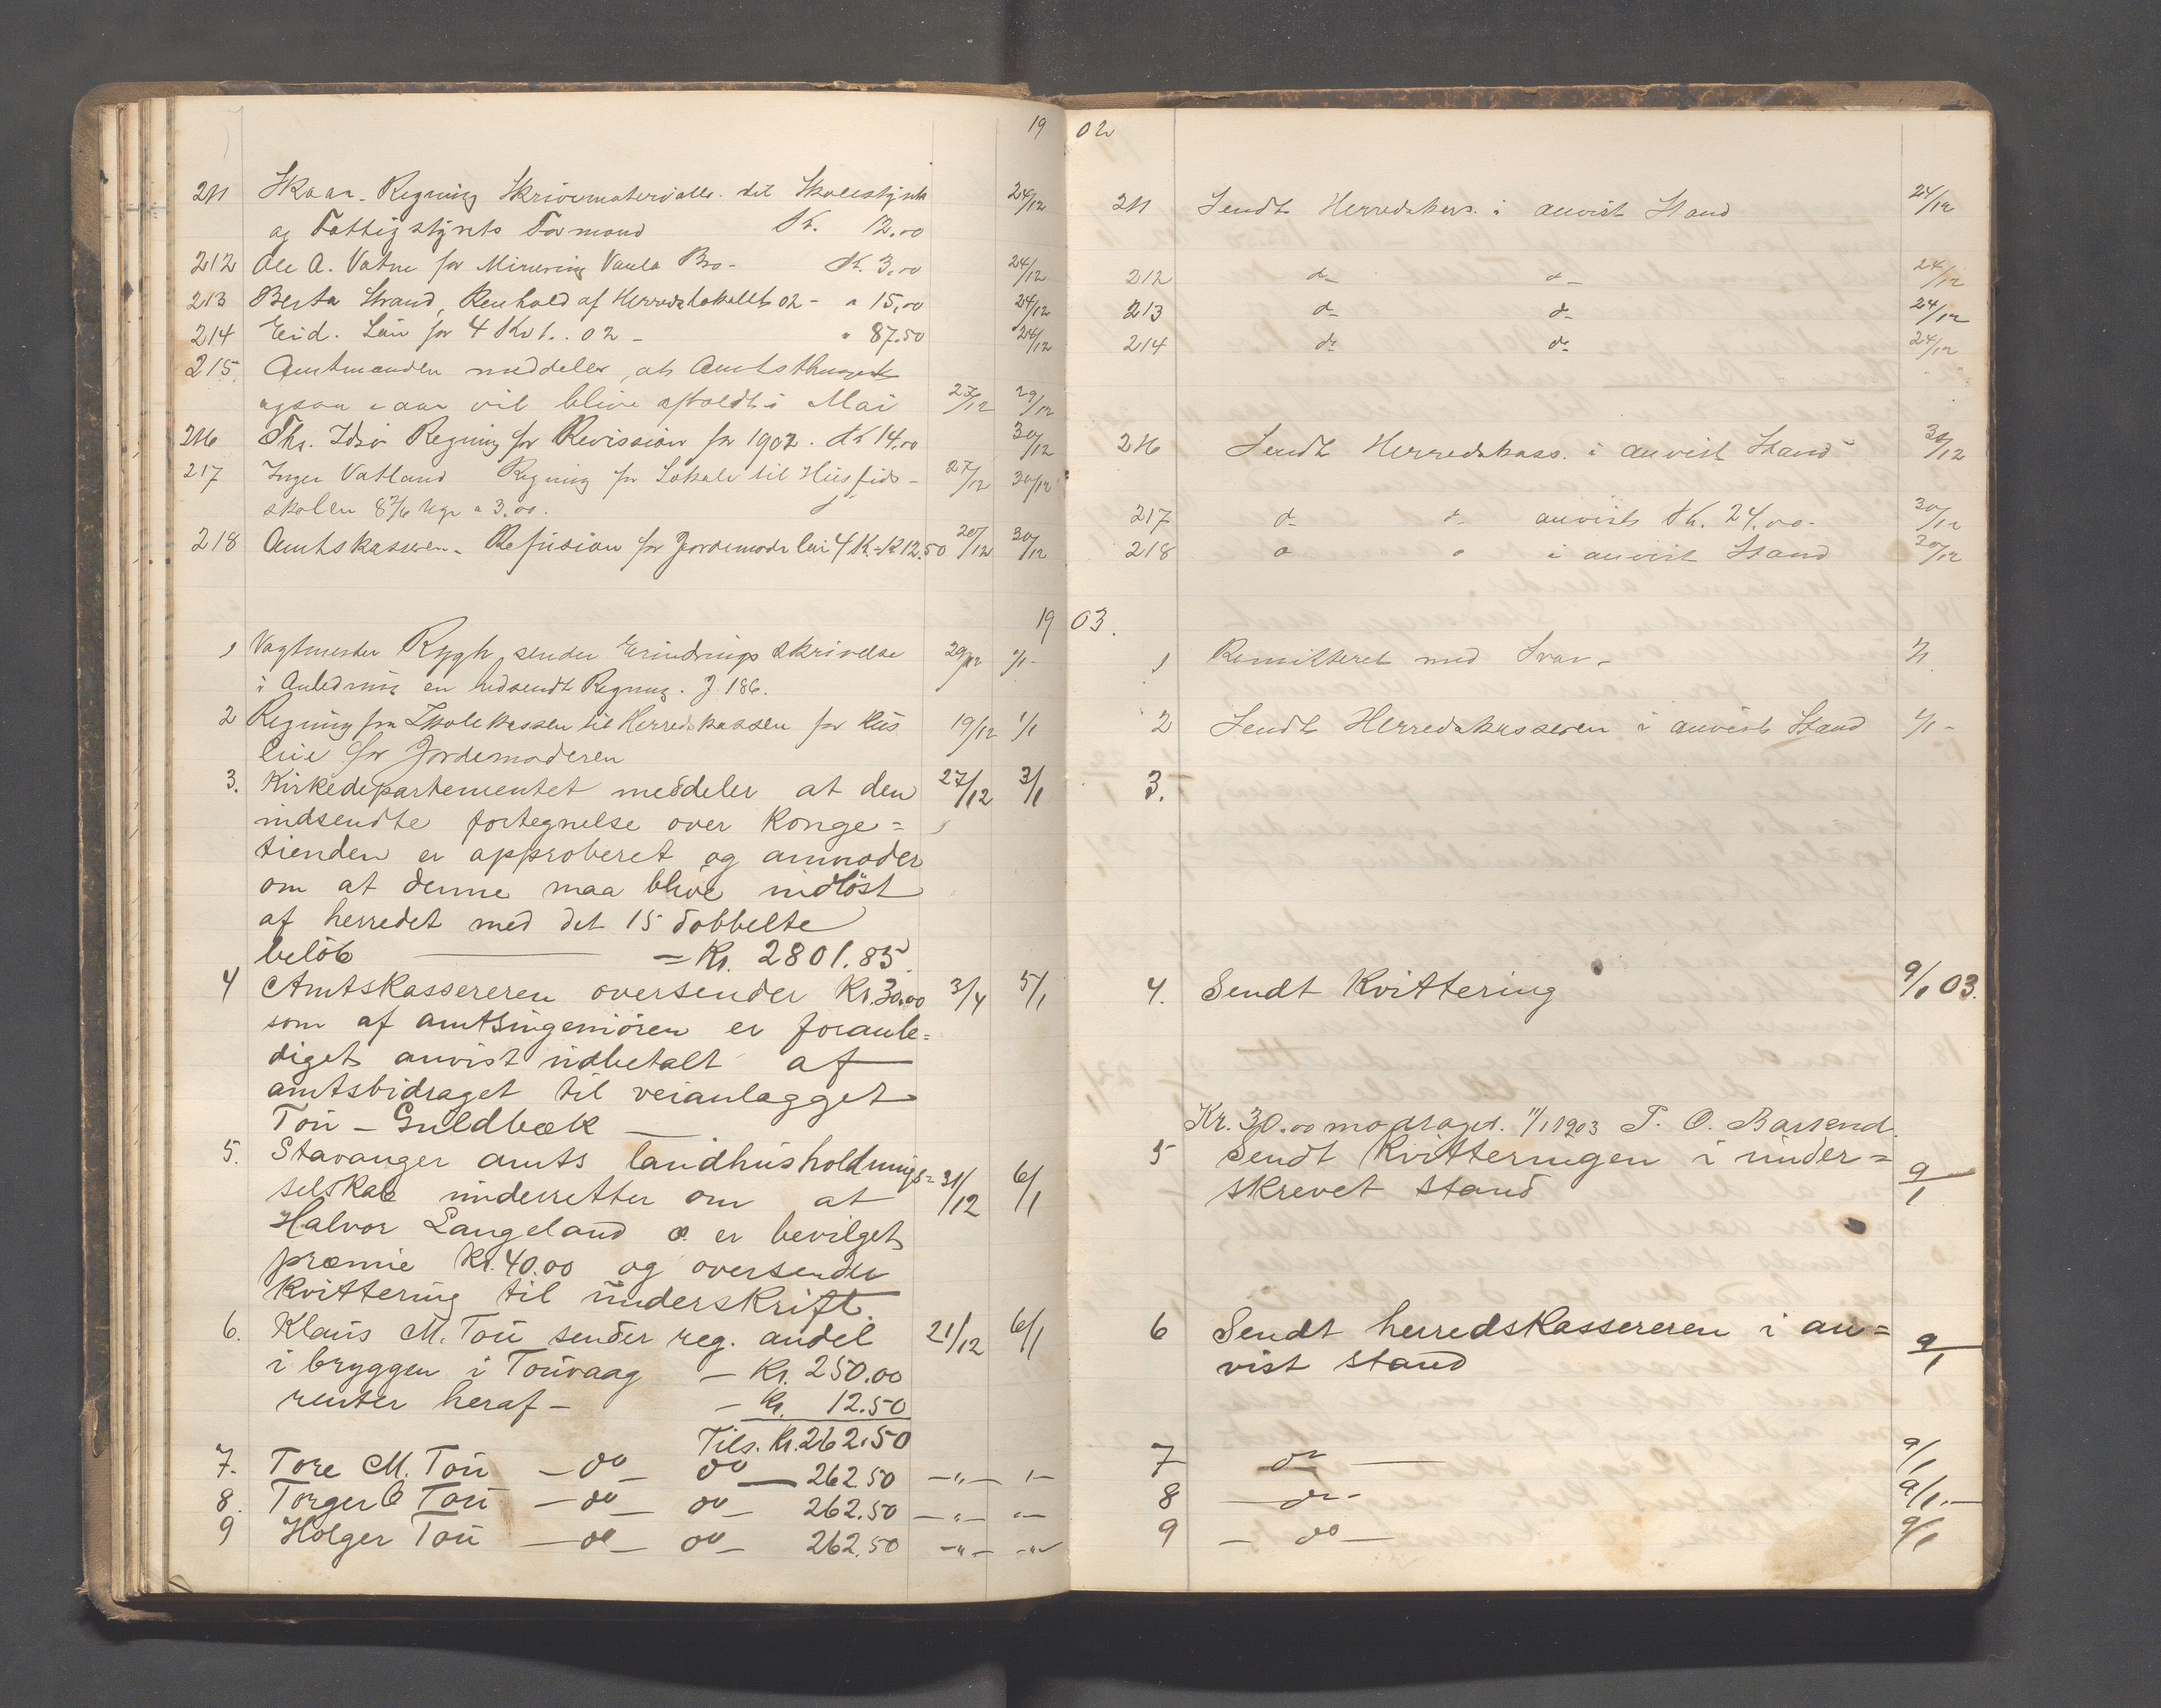 19 02
211 Skaar. Regning Skrivematerialle. til Skolestyrets 24/12
og Fattigstyrets Formand Kr. 12.00
212 Ole A. Vatne for Minering Vaula Bro - Kr. 3,00 24/12
213 Berta Strand, Renhold af Herredslokallet 02 - " 15,00 24/12
214 Eid. Løn for 4 Kvt. 02 - " 87.50 24/12
215. Amtmanden meddeler, at Amtsthinget
ogsaa i aar vil blive afholdt i Mai 23/12 29/12
216 Chr. Idsø Regning for Revission for 1902. Kr 14.00 30/12
217 Inger Vatland Regning for Lokale til Husflids- 27/12 30/12
skolen 8 2/6 Uger a 3.00.
218 Amtskasseren. Refusion for Jordemoderløn 4 K. = K 12.50 20/12 30/12
19 03.
1 Vagtmester Rygh sender Erindrings skrivelse 29/12 1/1 -
i Anledning en indsendt Regning. J 186.
2 Regning fra Skolekassen til Herredskassen for Hus 19/12 1/1
leie for Jordemoderen
3. Kirkedepartementet meddeler at den 27/12 3/1
indsendte fortegnelse over Konge=
tienden er approberet og anmoder
om at denne maa blive indløst
af herredet med det 15 dobbelte
beløb — = Kr. 2801.85.
4 Amtskassereren oversender Kr. 30.00 3/4 5/1
som af amtsingeniøren er foranle=
diget anvist udbetalt af
amtsbidraget til veianlægget
Tou - Guldbæk —
5. Stavanger amts landhusholdnings= 31/12 6/1
selskab underretter om at
Halvor Langeland ø. er bevilget
præmie Kr. 40.00 og oversender
kvittering til underskrift.
6. Klaus M. Tou sender reg. andel 21/12 6/1
i bryggen i Touvaag - Kr. 250.00
renter heraf - - Kr. 12.50
Tils. Kr. 262.50
7. Tore M. Tou - do - do - 262.50 - " - " -
8. Torger O Tou - do - do - 262.50 - " - " -
9 Holger Tou - do - do - 262.50 - " - - " -
211 Sendt Herredskass. i anvist Stand 24/12
212 do do - 24/12
213 do do 24/12
214 do do 24/12
216 Sendt Herredskass. i anvist Stand 30/12
217 do do anvist Kr. 24.00. 30/12
218 do do i anvist Stand 30/12
1 Remitteret med Svar. 2/1
2 Sendt Herredskasseren i anvist Stand 1/1 -
3.
4. Sendt Kvittering 9/1 03.
Kr. 30.00 modtaget. 11/1 1903 T. O. Barkend.
5 Sendt Kvitteringen i under= 9/1
skrevet stand
6 Sendt herredskassereren i an= 9/1
vist stand
7 do — 9/1
8 — do - 9/1 . —
9 — do — 9/1